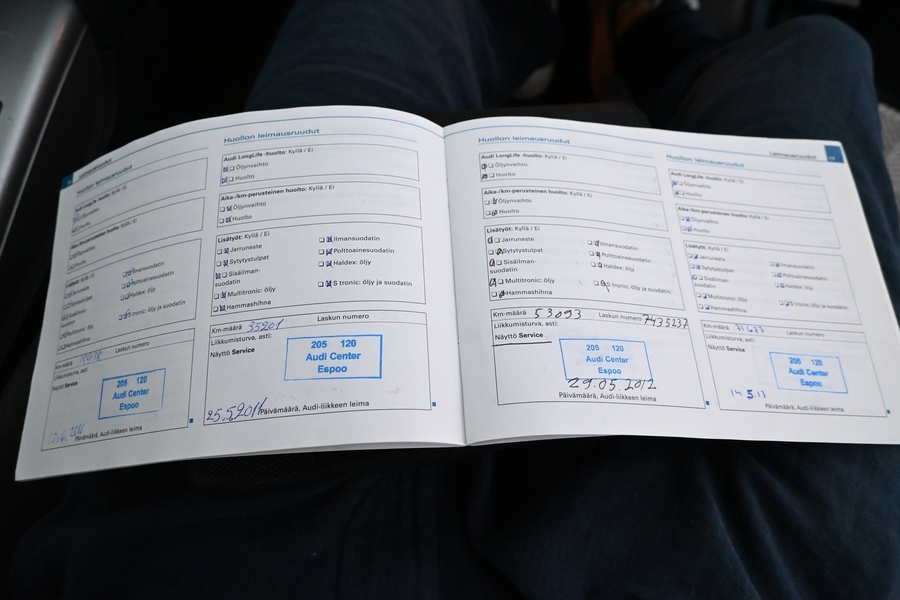 Huollon leimausruudut
Audi LongLife -huolto: Kyllä / Ei
Öljynvaihto
Huolto
Aika-/km-perusteinen huolto: Kyllä / Ei
Öljynvaihto
Huolto
Lisätyöt: Kyllä / Ei
Jarruneste
Sytytystulpat
Sisäilman-
suodatin
Multitronic: öljy
Hammashihna
Ilmansuodatin
Polttoainesuodatin
Haldex: öljy
S tronic: öljy ja suodatin
Km-määrä
Laskun numero
Liikkumisturva, asti:
Näyttö Service
205 120
Audi Center
Espoo
Päivämäärä, Audi-liikkeen leima
Huollon leimausruudut
Audi LongLife -huolto: Kyllä / Ei
Öljynvaihto
Huolto
Aika-/km-perusteinen huolto: Kyllä / Ei
Öljynvaihto
Huolto
Lisätyöt: Kyllä / Ei
Jarruneste
Sytytystulpat
Sisäilman-
suodatin
Multitronic: öljy
Hammashihna
Ilmansuodatin
Polttoainesuodatin
Haldex: öljy
S tronic: öljy ja suodatin
Km-määrä 35201
Laskun numero
Liikkumisturva, asti:
Näyttö Service
205 120
Audi Center
Espoo
25.5.2011
Päivämäärä, Audi-liikkeen leima
Huollon leimausruudut
Audi LongLife -huolto: Kyllä / Ei
Öljynvaihto
Huolto
Aika-/km-perusteinen huolto: Kyllä / Ei
Öljynvaihto
Huolto
Lisätyöt: Kyllä / Ei
Jarruneste
Sytytystulpat
Sisäilman-
suodatin
Multitronic: öljy
Hammashihna
Ilmansuodatin
Polttoainesuodatin
Haldex: öljy
S tronic: öljy ja suodatin
Km-määrä 53093
Laskun numero 7435237
Liikkumisturva, asti:
Näyttö Service
205 120
Audi Center
Espoo
29.05.2012
Päivämäärä, Audi-liikkeen leima
Huollon leimausruudut
Audi LongLife -huolto: Kyllä / Ei
Öljynvaihto
Huolto
Aika-/km-perusteinen huolto: Kyllä / Ei
Öljynvaihto
Huolto
Lisätyöt: Kyllä / Ei
Jarruneste
Sytytystulpat
Sisäilman-
suodatin
Multitronic: öljy
Hammashihna
Ilmansuodatin
Polttoainesuodatin
Haldex: öljy
S tronic: öljy ja suodatin
Km-määrä
Laskun numero
Liikkumisturva, asti:
Näyttö Service
205 120
Audi Center
Espoo
14.5.13
Päivämäärä, Audi-liikkeen leima